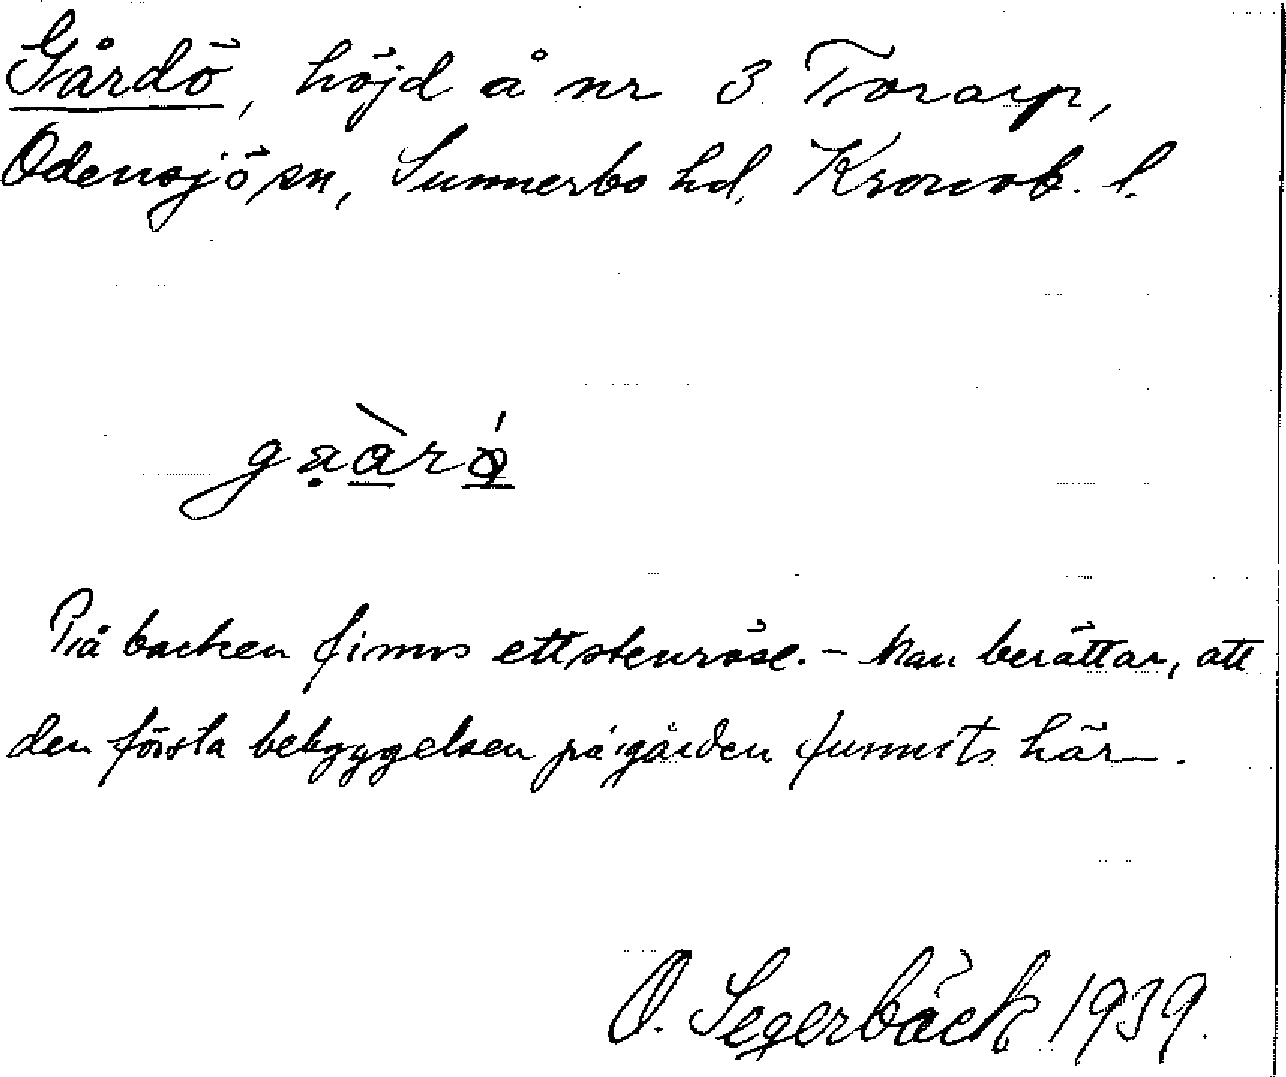 Gårdö, höjd å nr 3 Torarp,
Odensjö sn, Sunnerbo hd, Kronob. l.
På backen finns ett stenröse. – Man berättar, att
den första bebyggelsen på gården funnits här.
O. Segerbäck 1939.